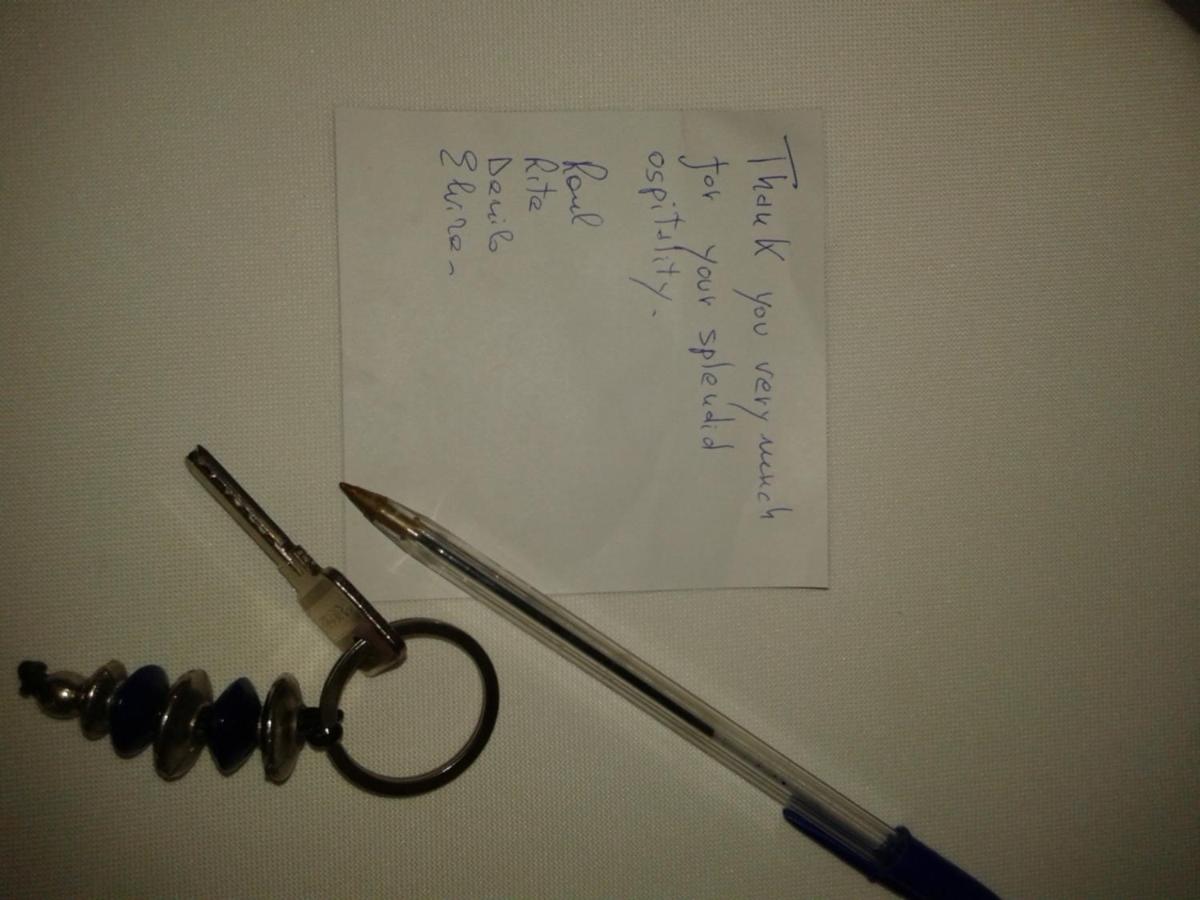 Thank you very much
for your splendid
ospitality.
Raul
Rita
Danilo
Elvira